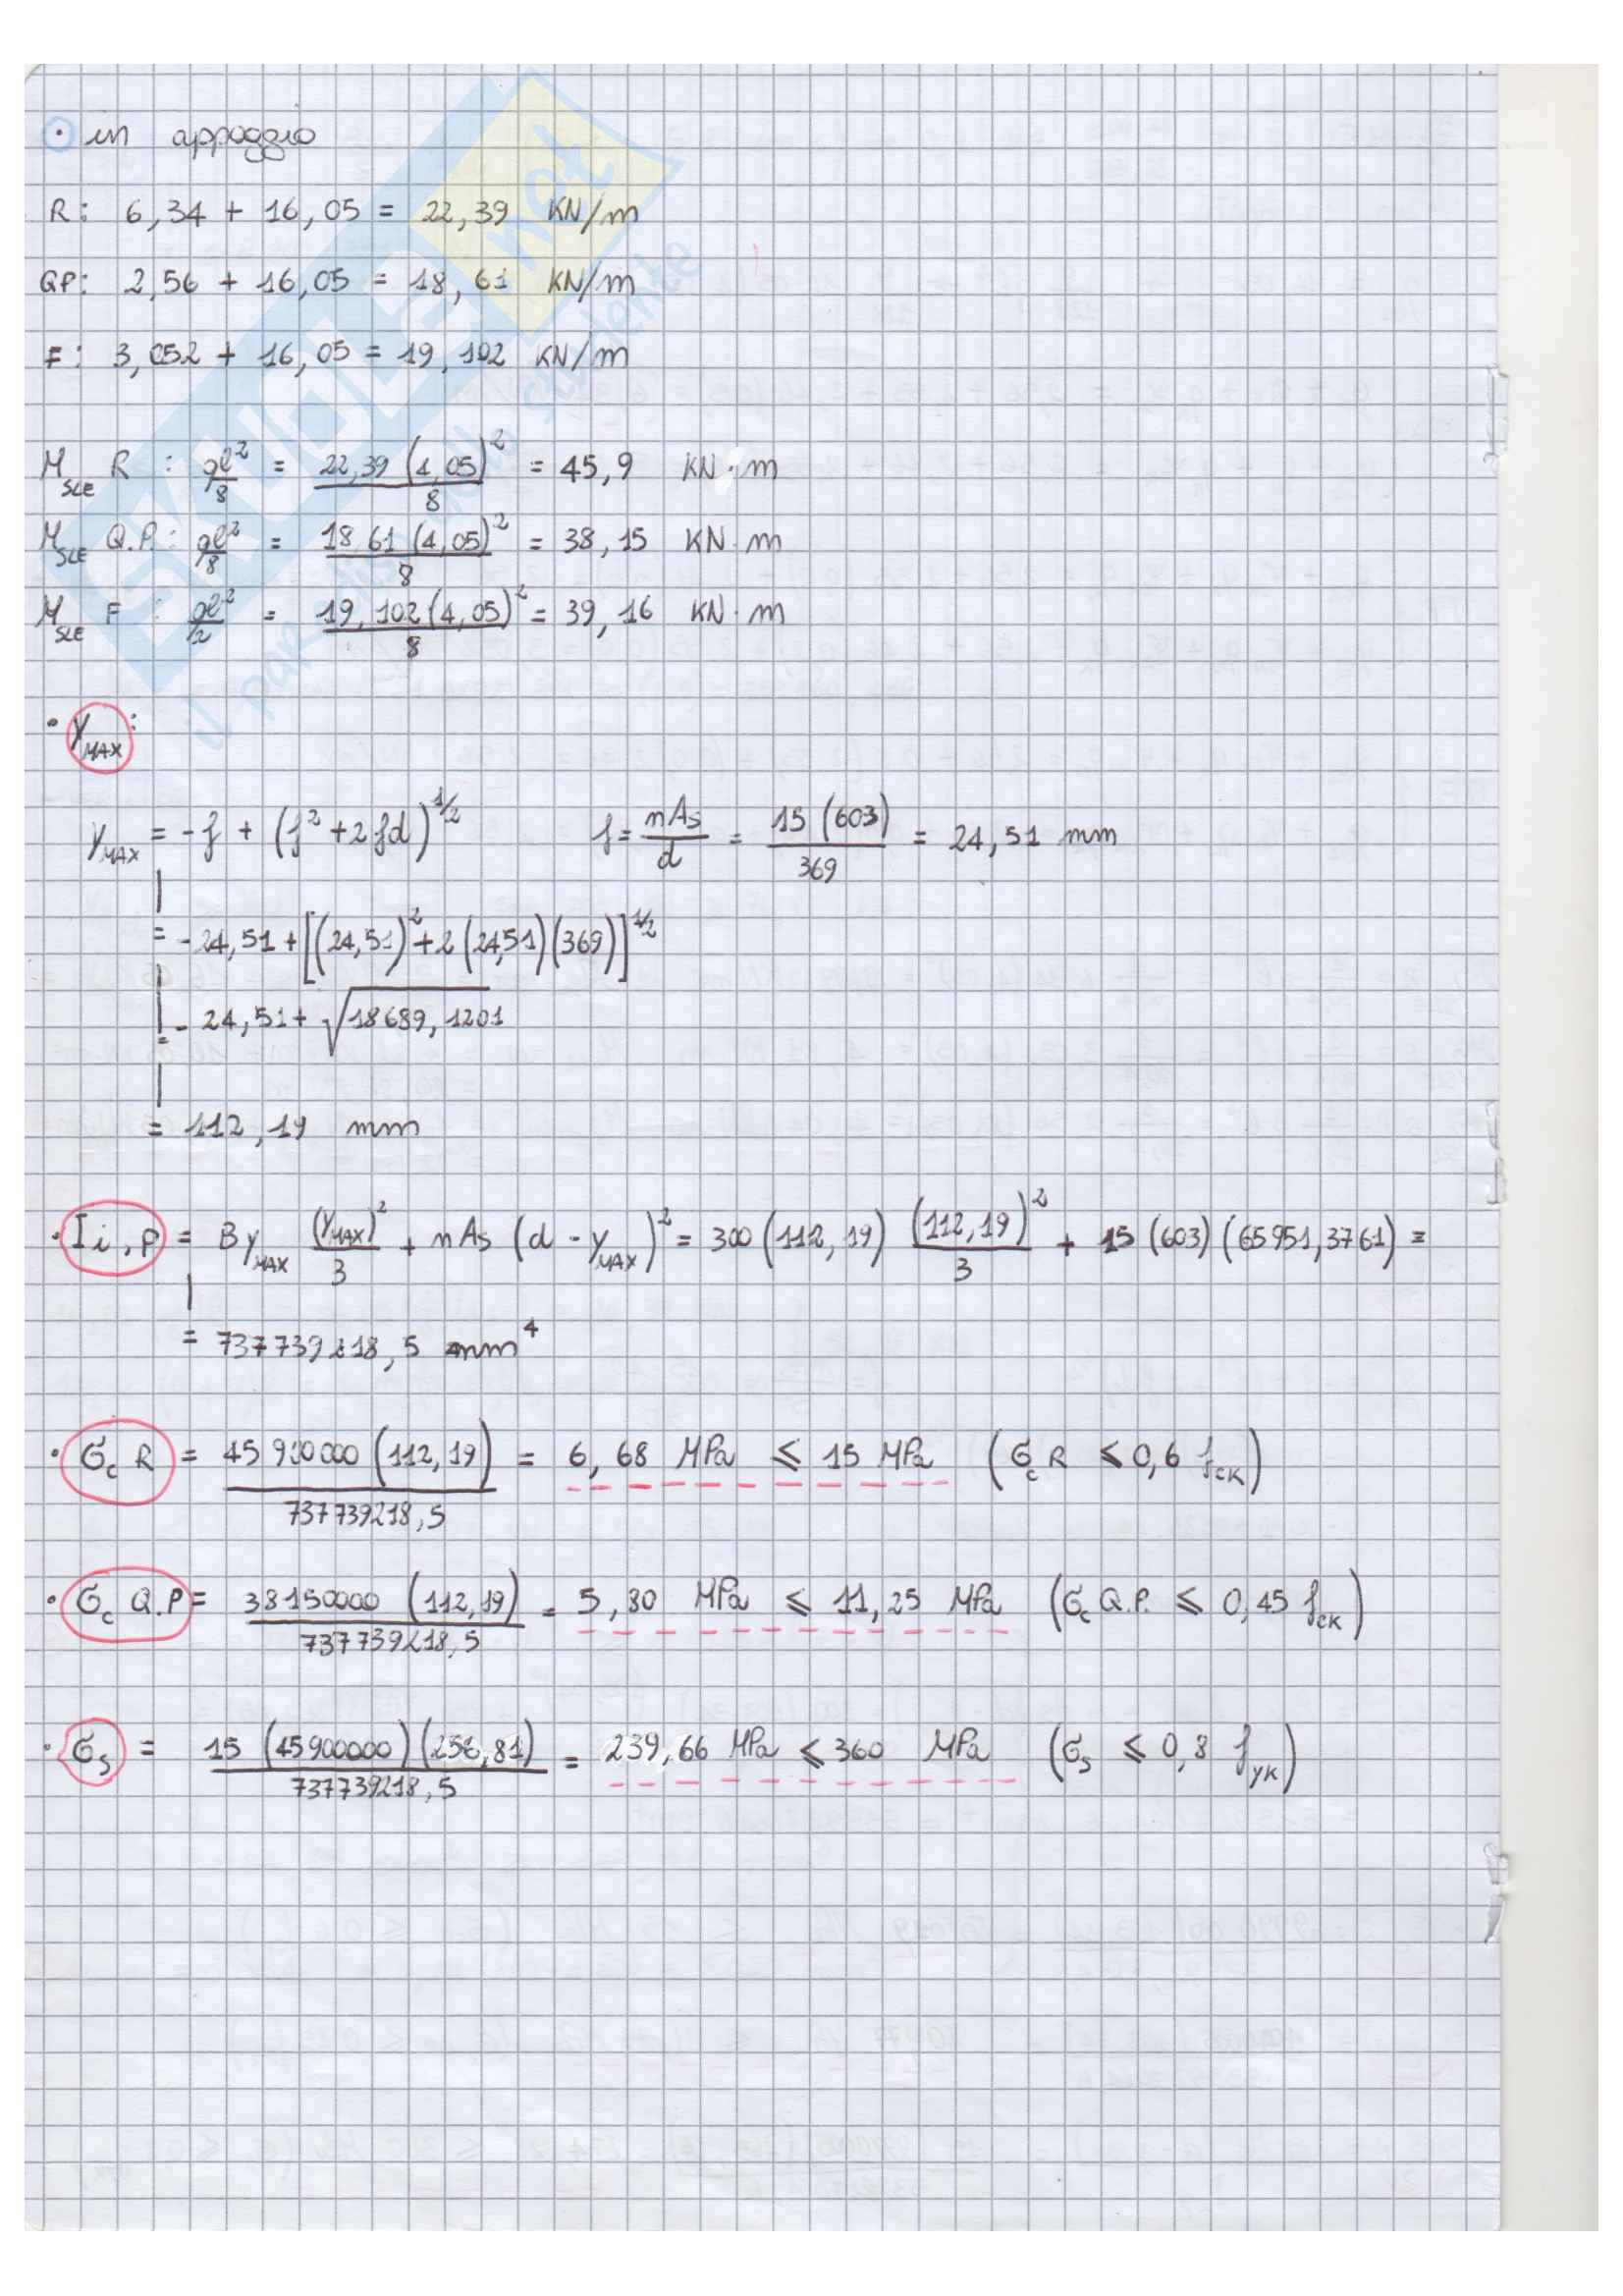 · in appoggio
R: 6,34 + 16,05 = 22,39 KN/m
QP: 2,56 + 16,05 = 18,61 KN/m
F: 3,052 + 16,05 = 19,102 KN/m
M_SLE R : ql²/8 = 22,39 (4,05)²/8 = 45,9 KN·m
M_SLE Q.P.: ql²/8 = 18,61 (4,05)²/8 = 38,15 KN·m
M_SLE F : ql²/2 = 19,102 (4,05)²/8 = 39,16 KN·m
· y_MAX:
y_MAX = -f + (f² + 2fd)^1/2 f = nAs/d = 15 (603)/369 = 24,51 mm
= -24,51 + [(24,51)² + 2 (24,51)(369)]^1/2
= - 24,51 + √18689,1201
= 112,19 mm
· I i,p = B y_MAX (y_MAX)²/3 + nAs (d - y_MAX)² = 300 (112,19) (112,19)²/3 + 15 (603) (65951,3761) =
= 737739218,5 mm⁴
· σc R = 45900000 (112,19)/737739218,5 = 6,68 MPa ≤ 15 MPa (σc R ≤ 0,6 fck)
· σc Q.P = 38150000 (112,19)/737739218,5 = 5,80 MPa ≤ 11,25 MPa (σc Q.P. ≤ 0,45 fck)
· σs = 15 (45900000) (256,81)/737739218,5 = 239,66 MPa ≤ 360 MPa (σs ≤ 0,8 fyk)
SKUOLA.net
il paradiso dello studente